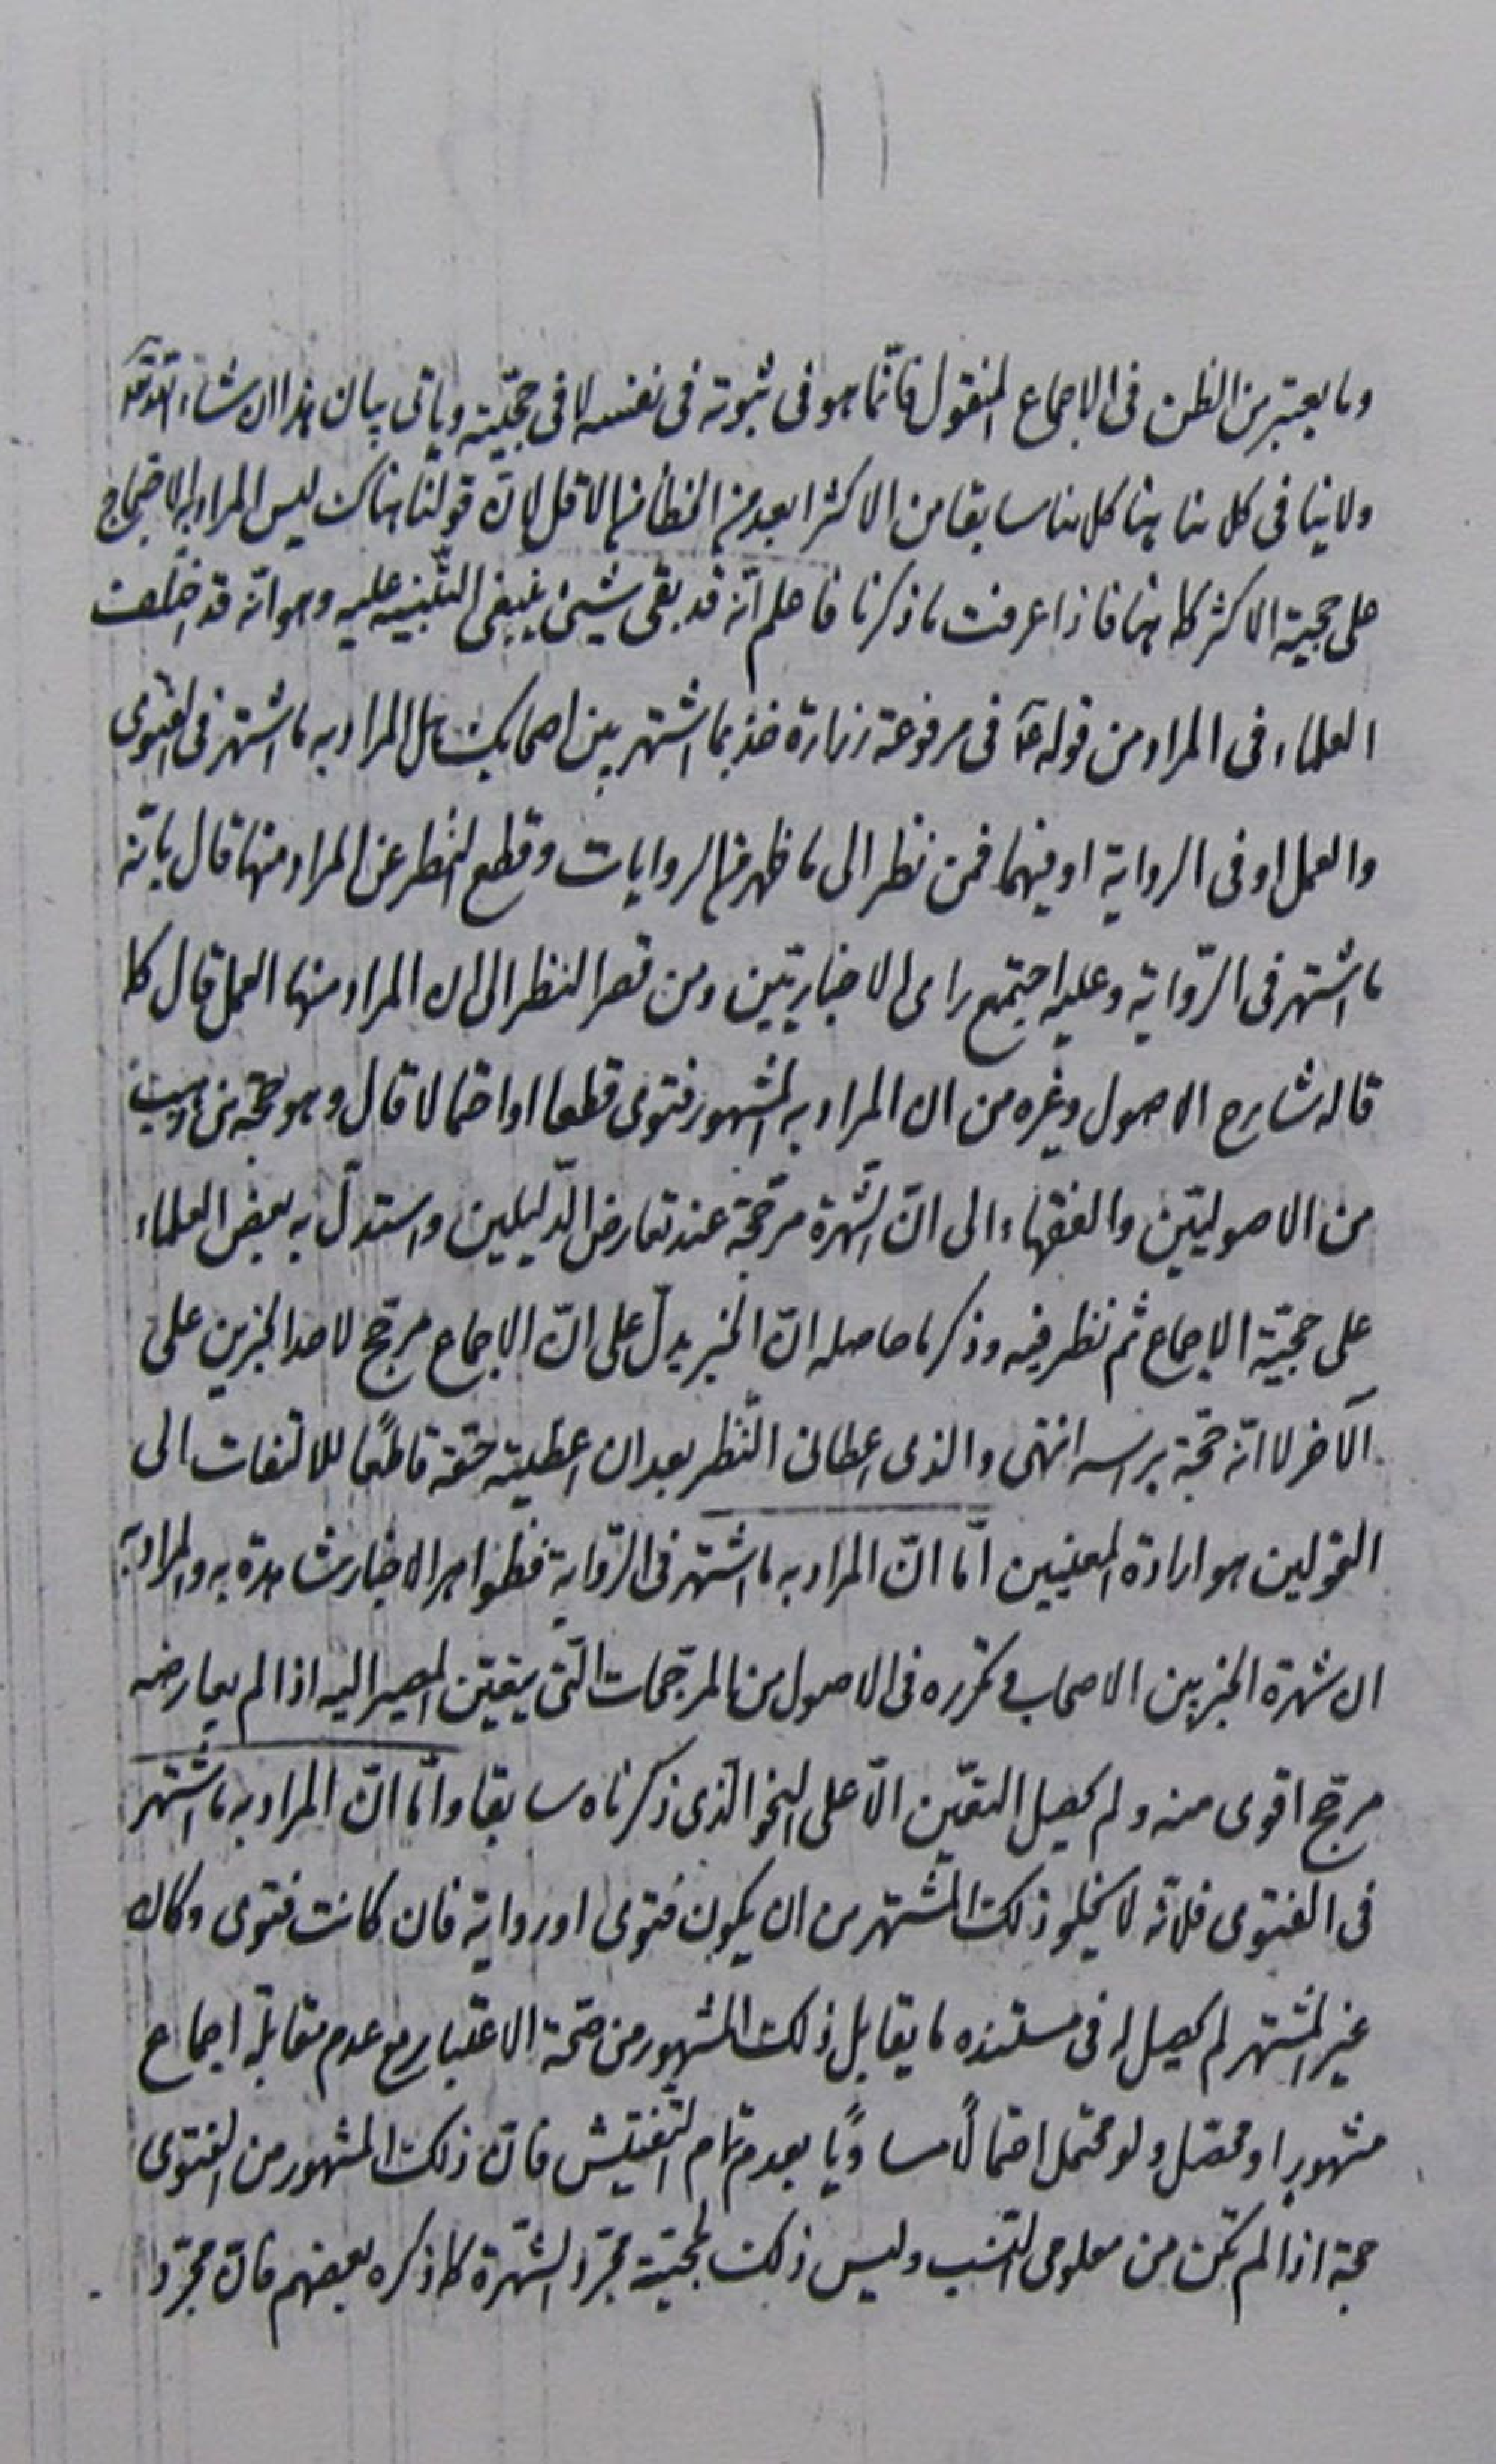 وما يعتبر من الظن فى الاجماع المنقول فانّما هو فى ثبوته فى نفسه لا فى حجّيته وياتى بيان هذا ان شاء الله تعالى
ولا ينافى كلامنا هنا كلامنا سابقا من الاكثر ابعد من الخطأ من الاقل لانّ قولنا هناك ليس المراد به الاحتجاج
على حجية الاكثر كما هنا فاذا عرفت ما ذكرنا فاعلم انّه قد بقى شيئ ينبغى التّنبيه عليه وهو انّه قد اختلفت
العلماء فى المراد من قوله ع فى مرفوعة زرارة خذ بما اشتهر بين اصحابك هل المراد به ما اشتهر فى الفتوى
والعمل او فى الرواية او فيهما فمن نظر الى ما ظهر من الروايات وقطع النظر عن المراد منها قال بانّه
ما اشتهر فى الرّواية وعليه اجتمع راى الاخباريّين ومن قصر النظر الى ان المراد منها العمل قال كما
قاله شارح الاصول وغيره من ان المراد به المشهور فتوى قطعا او احتمالا قال وهو حجّة من ذهب
من الاصوليّين والفقهاء الى انّ الشّهرة مرجّحة عند تعارض الدّليلين واستدلّ به بعض العلماء
على حجيّة الاجماع ثم نظر فيه وذكر ما حاصله انّ الخبر يدلّ على انّ الاجماع مرجّح لاحد الخبرين على
الآخر لا انّه حجّة براسه انتهى والذى اعطانى النّظر بعد ان اعطيته حقّه قاطعًا للالتفات الى
القولين هو ارادة المعنيين امّا انّ المراد به ما اشتهر فى الرّواية فظواهر الاخبار شاهدة به والمراد به
ان شهرة الخبر بين الاصحاب وتكرره فى الاصول من المرجّحات الّتى يتعيّن المصير اليه اذا لم يعارضه
مرجّح اقوى منه ولم يحصل التعيّن الّا على النحو الّذى ذكرناه سابقا وامّا انّ المراد به ما اشتهر
فى الفتوى فلانّه لا يخلو ذلك المشتهر من ان يكون فتوى او رواية فان كانت فتوى وكان
غير المشتهر لم يحصل له فى مستنده ما يقابل ذلك المشهور من صحّة الاعتبار مع عدم مقابلة اجماع
مشهور او محصّل ولو محتمل احتمالًا مساويًا بعد تمام التّفتيش فانّ ذلك المشهور من الفتوى
حجة اذا لم تكن من معلومى النّسب وليس ذلك لحجيّة مجرّد الشّهرة كما ذكره بعضهم فانّ مجرّد